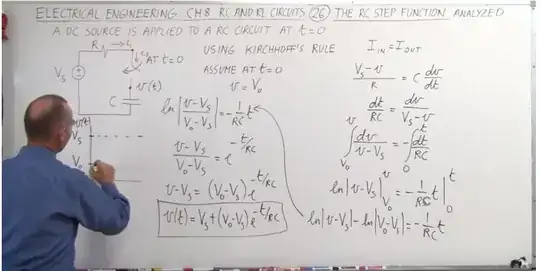 ELECTRICAL ENGINEERING CH 8 RC AND RL CIRCUITS (26) THE RC STEP FUNCTION ANALYZED
A DC SOURCE IS APPLIED TO A RC CIRCUIT AT t=0
R → i
AT t=0
V_S
C
v(t)
v(t)
V_S
V_0
USING KIRCHHOFF'S RULE
ASSUME AT t=0
v = V_0
ln|(v-V_S)/(V_0-V_S)| = -1/RC t
(v-V_S)/(V_0-V_S) = e^(-t/RC)
v-V_S = (V_0-V_S) e^(-t/RC)
v(t) = V_S + (V_0-V_S) e^(-t/RC)
I_IN = I_OUT
(V_S-v)/R = C dv/dt
dt/RC = dv/(V_S-v)
∫_{V_0}^{v} dv/(v-V_S) = -∫_0^t dt/RC
ln|v-V_S| |_{V_0}^{v} = -1/RC t |_0^t
ln|v-V_S| - ln|V_0-V_S| = -1/RC t